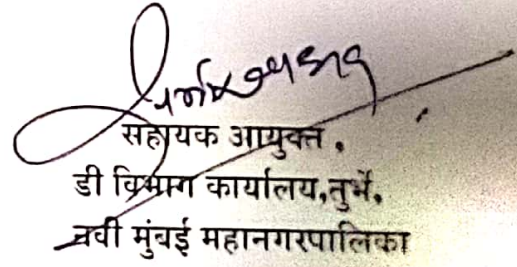 सहायक आयुक्त .
डी विभाग कार्यालय,तुर्भे.
नवी मुंबई महानगरपालिका